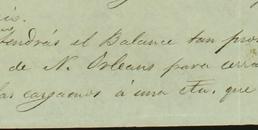 tendrás el Balance tan pro
de N. Orleans para cerra
las cargamos á una cta. que